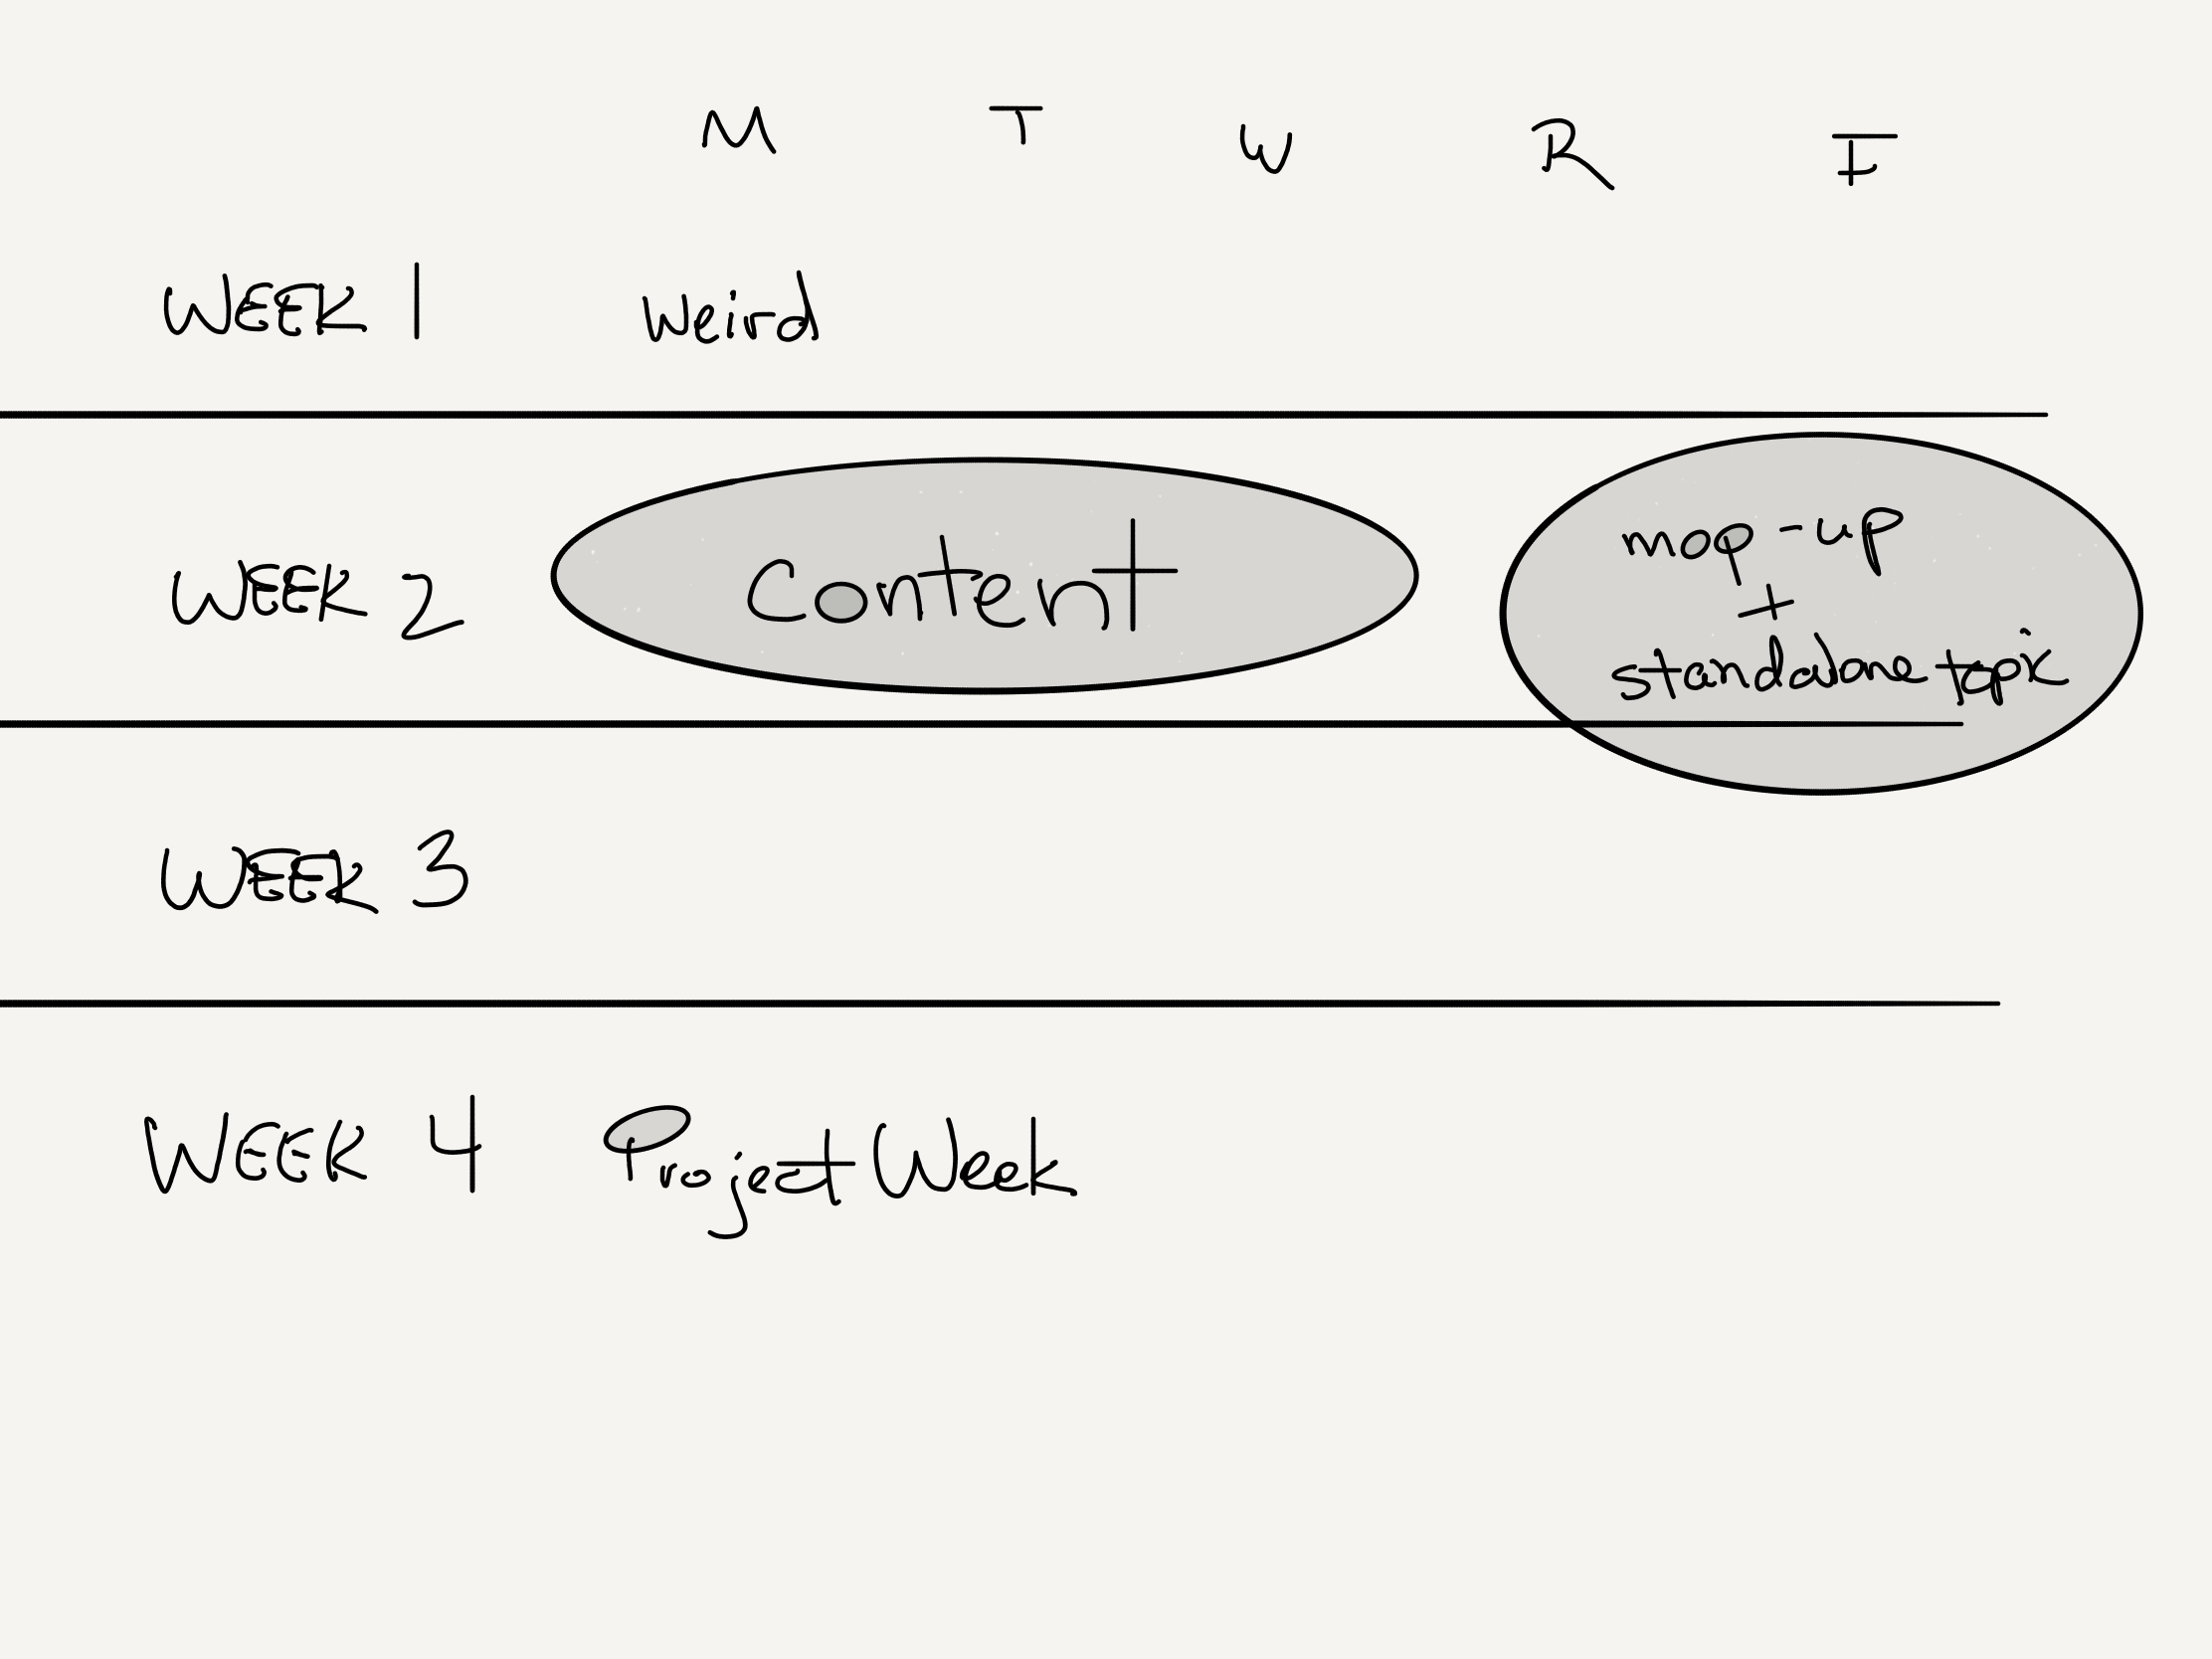 M T W R F
WEEK 1 Weird
WEEK 2 Content
mop-up
+
standalone topic
WEEK 3
WEEK 4 Project Week